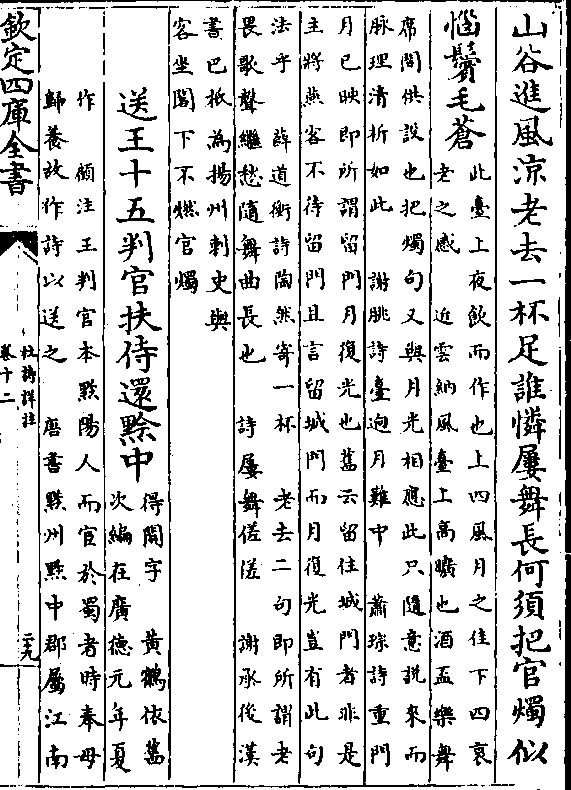 山谷進風涼老去一杯足誰憐屢舞長何須把官燭似
惱鬢毛蒼
此臺上夜飲而作也上四風月之佳下四哀
老之感 近雲納風臺上高曠也酒盃樂舞
席間供設也把燭句又與月光相應此只隨意說來而
脉理清析如此 謝朓詩臺逈月難中 蕭琛詩重門
月已映即所謂留門月復光也舊云留住城門者非是
主將燕客不待留門且言留城門而月復光豈有此句
法乎 薛道衡詩陶然寄一杯 老去二句即所謂老
畏歌聲繼愁隨舞曲長也 詩屢舞傞傞 謝承後漢
書巴祇為揚州刺史與
客坐闇下不燃官燭
送王十五判官扶侍還黔中
得開字 黃鶴依舊
次編在廣德元年夏
作 顧注王判官本黔陽人而官於蜀者時奉母
歸養故作詩以送之 唐書黔州黔中郡屬江南
欽定四庫全書
杜詩詳註
卷十二
二九